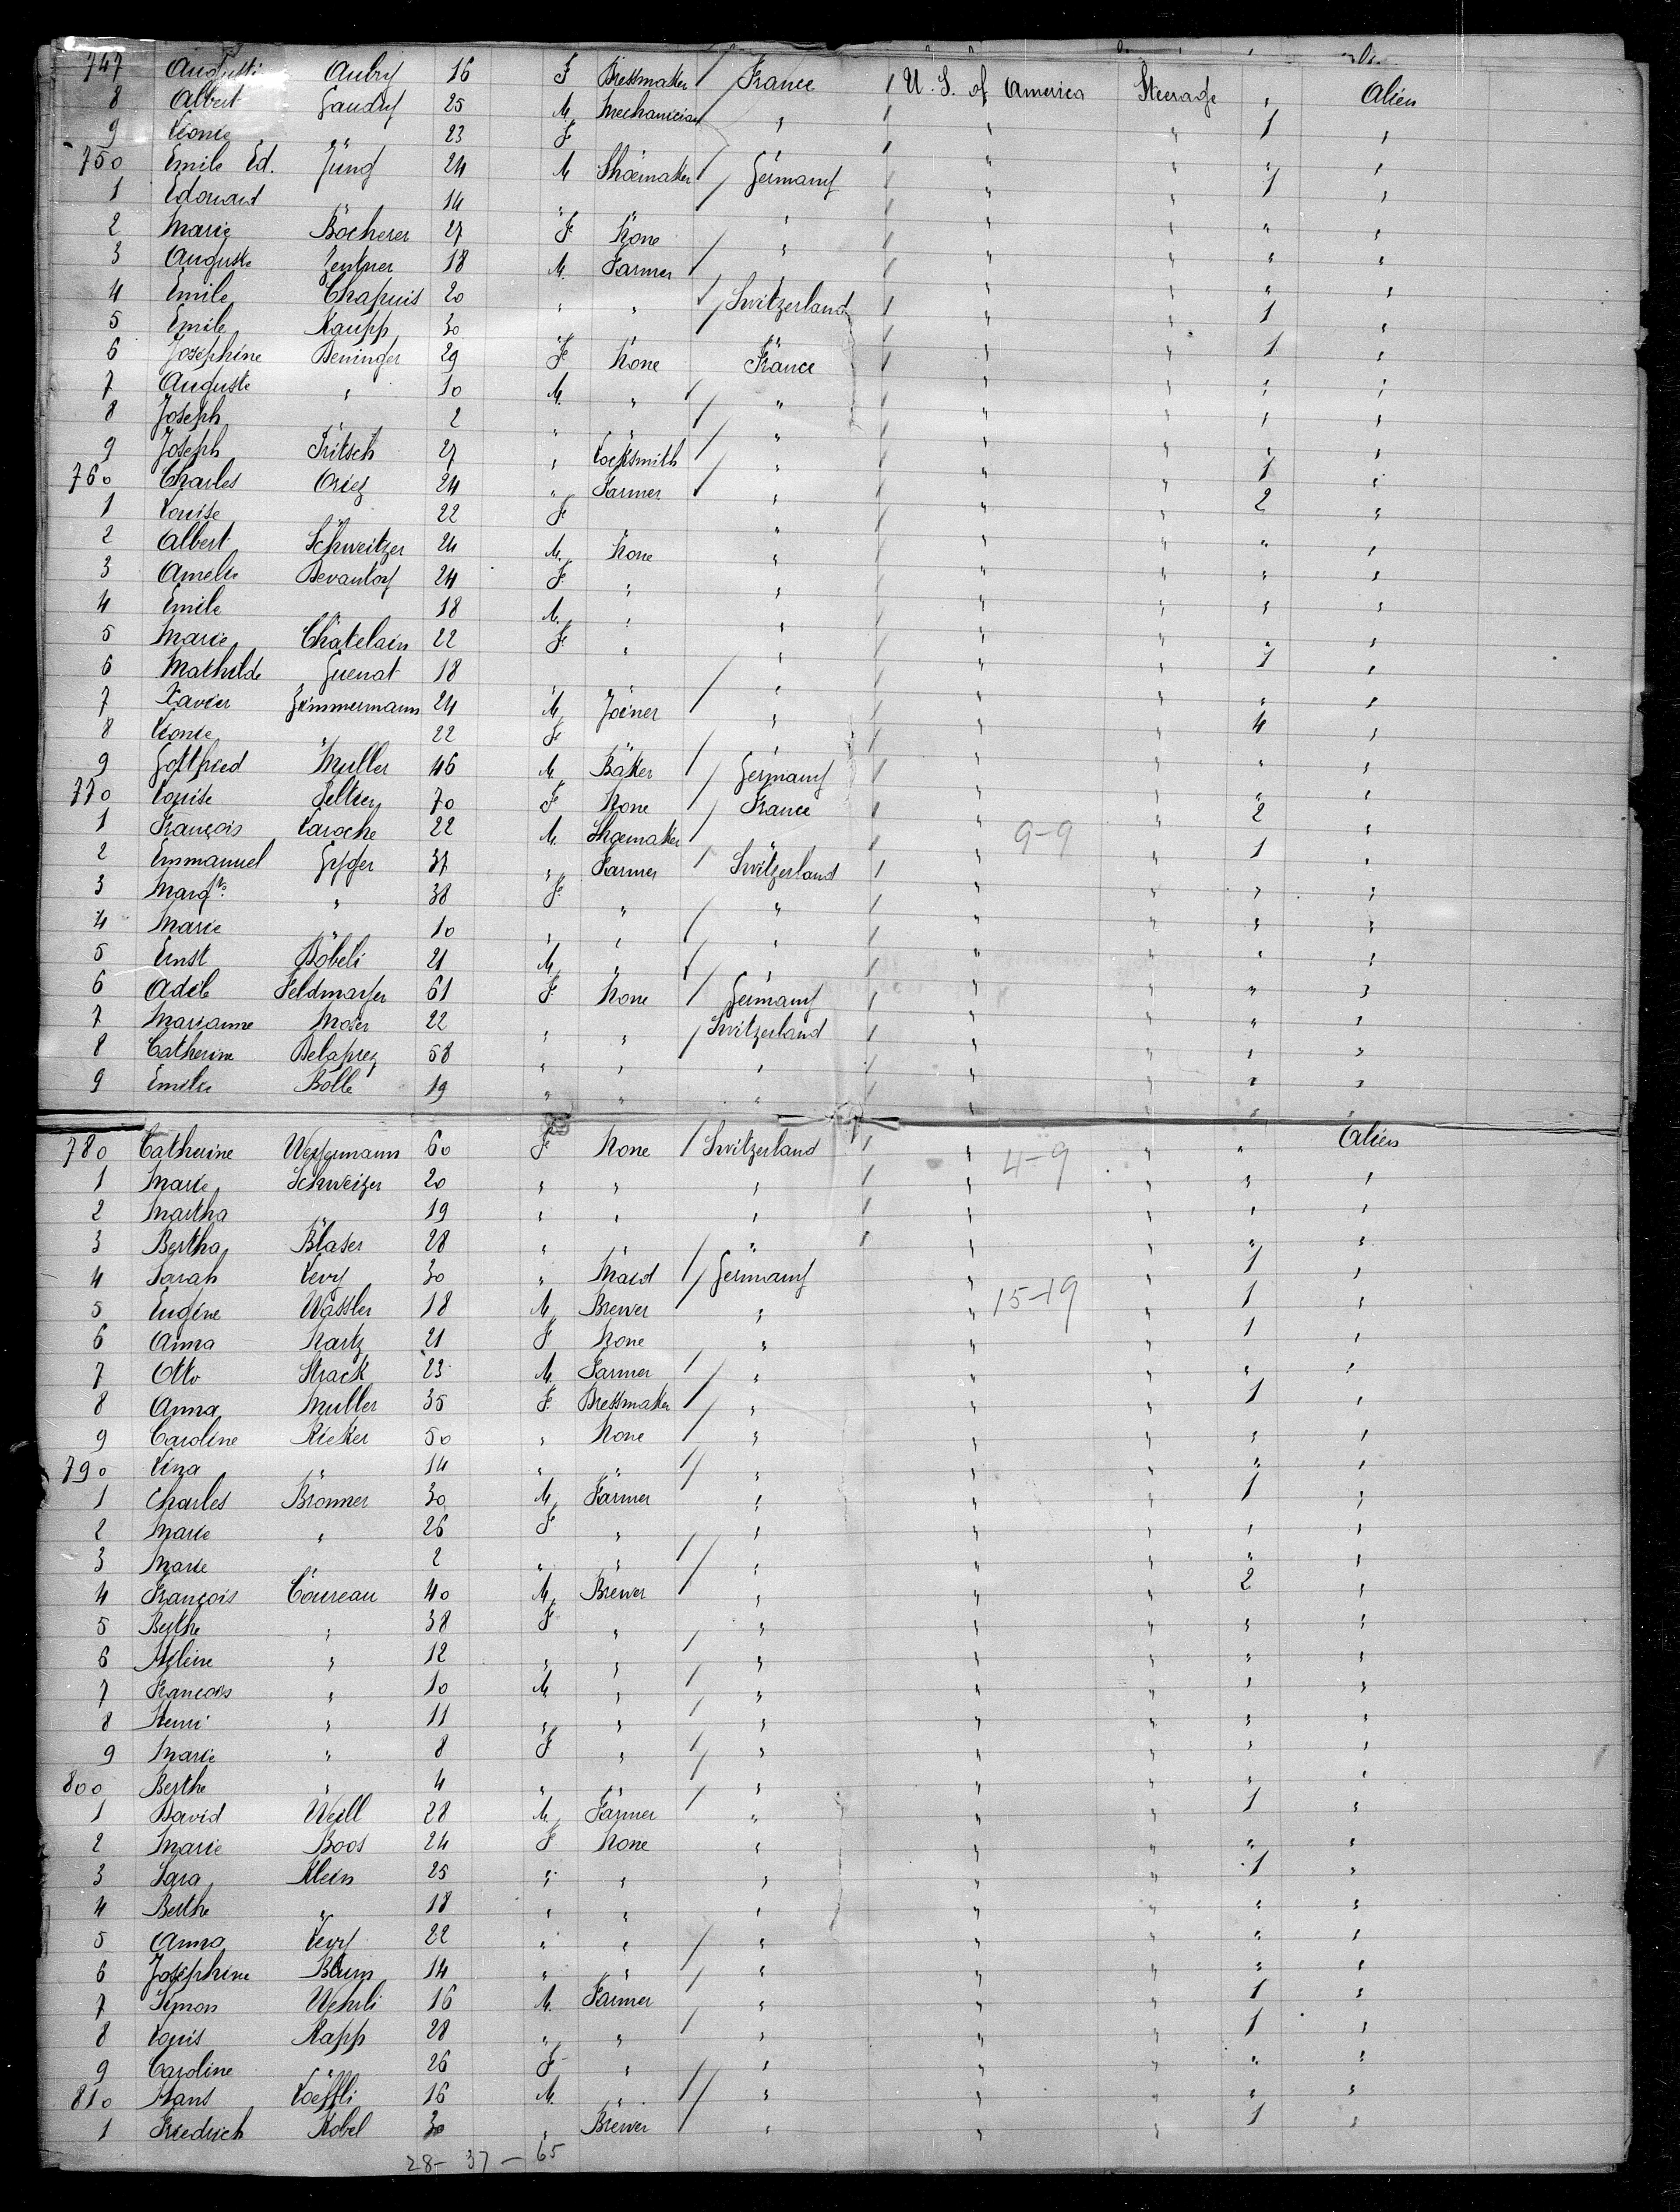 747 Auguste Aubry 16 F Dressmaker / France / U. S. of America Steerage " Alien
8 Albert Gaudry 25 M. Mechanician / " / " " 1 "
9 Léonie " 23 F " " " "
750 Emile Ed. Jung 24 M Shoemaker / Germany / " " 1 "
1 Edouard " 14 " " " " "
2 Marie Bocherer 27 F None / " / " " " "
3 Auguste Zentner 18 M. Farmer / " " " " "
4 Emile Chapuis 20 " " / Switzerland / " " 1 "
5 Emile Kaupp 30 " " " / " " 1 "
6 Joséphine Deninger 29 F None France / " " " "
7 Auguste " 10 M. " / " " " " "
8 Joseph " 2 " " / " / " " " "
9 Joseph Fritsch 27 " Locksmith / " / " " 1 "
760 Charles Oriez 24 " Farmer / " / " " 2 "
1 Louise " 22 F " / " " " "
2 Albert Schweitzer 24 M. None " / " " " "
3 Amélie Devantoy 24 F " " / " " " "
4 Emile " 18 M. " " / " " " "
5 Marie Châtelain 22 F " " / " " 1 "
6 Mathilde Guenat 18 " " / " / " " " "
7 Xavier Zimmermann 24 M. Joiner " / " " 4 "
8 Léonie " 22 F / " " " "
9 Gottfried Muller 46 M. Baker / Germany / " " " "
770 Louise Feltrey 70 F None / France / " " 2 "
1 François Laroche 22 M. Shoemaker / " / " 9-9 " 1 "
2 Emmanuel Gyger 37 " Farmer / Switzerland / " " " "
3 Margte. " 38 F " / " / " " " "
4 Marie " 10 " " / " / " " " "
5 Ernst Bobeli 21 M. " / " / " " " "
6 Adèle Feldmayer 61 F None / Germany / " " " "
7 Marianne Moser 22 " " / Switzerland / " " " "
8 Catherine Delaprez 58 " " " / " " " "
9 Emilie Bolle 19 " " " / " " " "
780 Catherine Weyermann 60 F None / Switzerland / " 4-9 " " Alien
1 Marie Schweizer 20 " " " / " " " "
2 Martha " 19 " " " / " " " "
3 Bertha Blaser 28 " / " / " " " "
4 Sarah Levy 30 " Maid / Germany " " 1 "
5 Eugène Wassler 18 M. Brewer " " 15-19 " 1 "
6 Anna Hartz 21 F None " " " 1 "
7 Otto Strack 23 M. Farmer / " " " " "
8 Anna Muller 35 F. Dressmaker / " " " 1 "
9 Caroline Rieker 50 " None / " " " " "
790 Lina " 14 " " / " " " " "
1 Charles Bronner 30 M. Farmer " " " 1 "
2 Marie " 26 F " " " " " "
3 Marie " 2 " " / " " " " "
4 François Coureau 40 M. Brewer / " " " 2 "
5 Berthe " 38 F " " " " " "
6 Azline " 12 " " / " " " " "
7 François " 10 M " / " " " " "
8 Henri " 11 " " / " " " " "
9 Marie " 8 F " / " " " " "
800 Berthe " 4 " " / " " " " "
1 David Weill 28 M. Farmer / " " " 1 "
2 Marie Boos 24 F None " " " " "
3 Sara Klein 25 " " " " " 1 "
4 Berthe " 18 " " " " " " "
5 Anna Levy 22 " " / " " " " "
6 Joséphine Blum 14 " " / " " " " "
7 Simon Wehrli 16 M. Farmer / " " " 1 "
8 Louis Rapp 28 " " / " " " 1 "
9 Caroline " 26 F " " " " " "
810 Hans Loeffli 16 M. " / " " " " "
1 Friedrich Kobel 30 " Brewer / " " " 1 "
28- 37 - 65